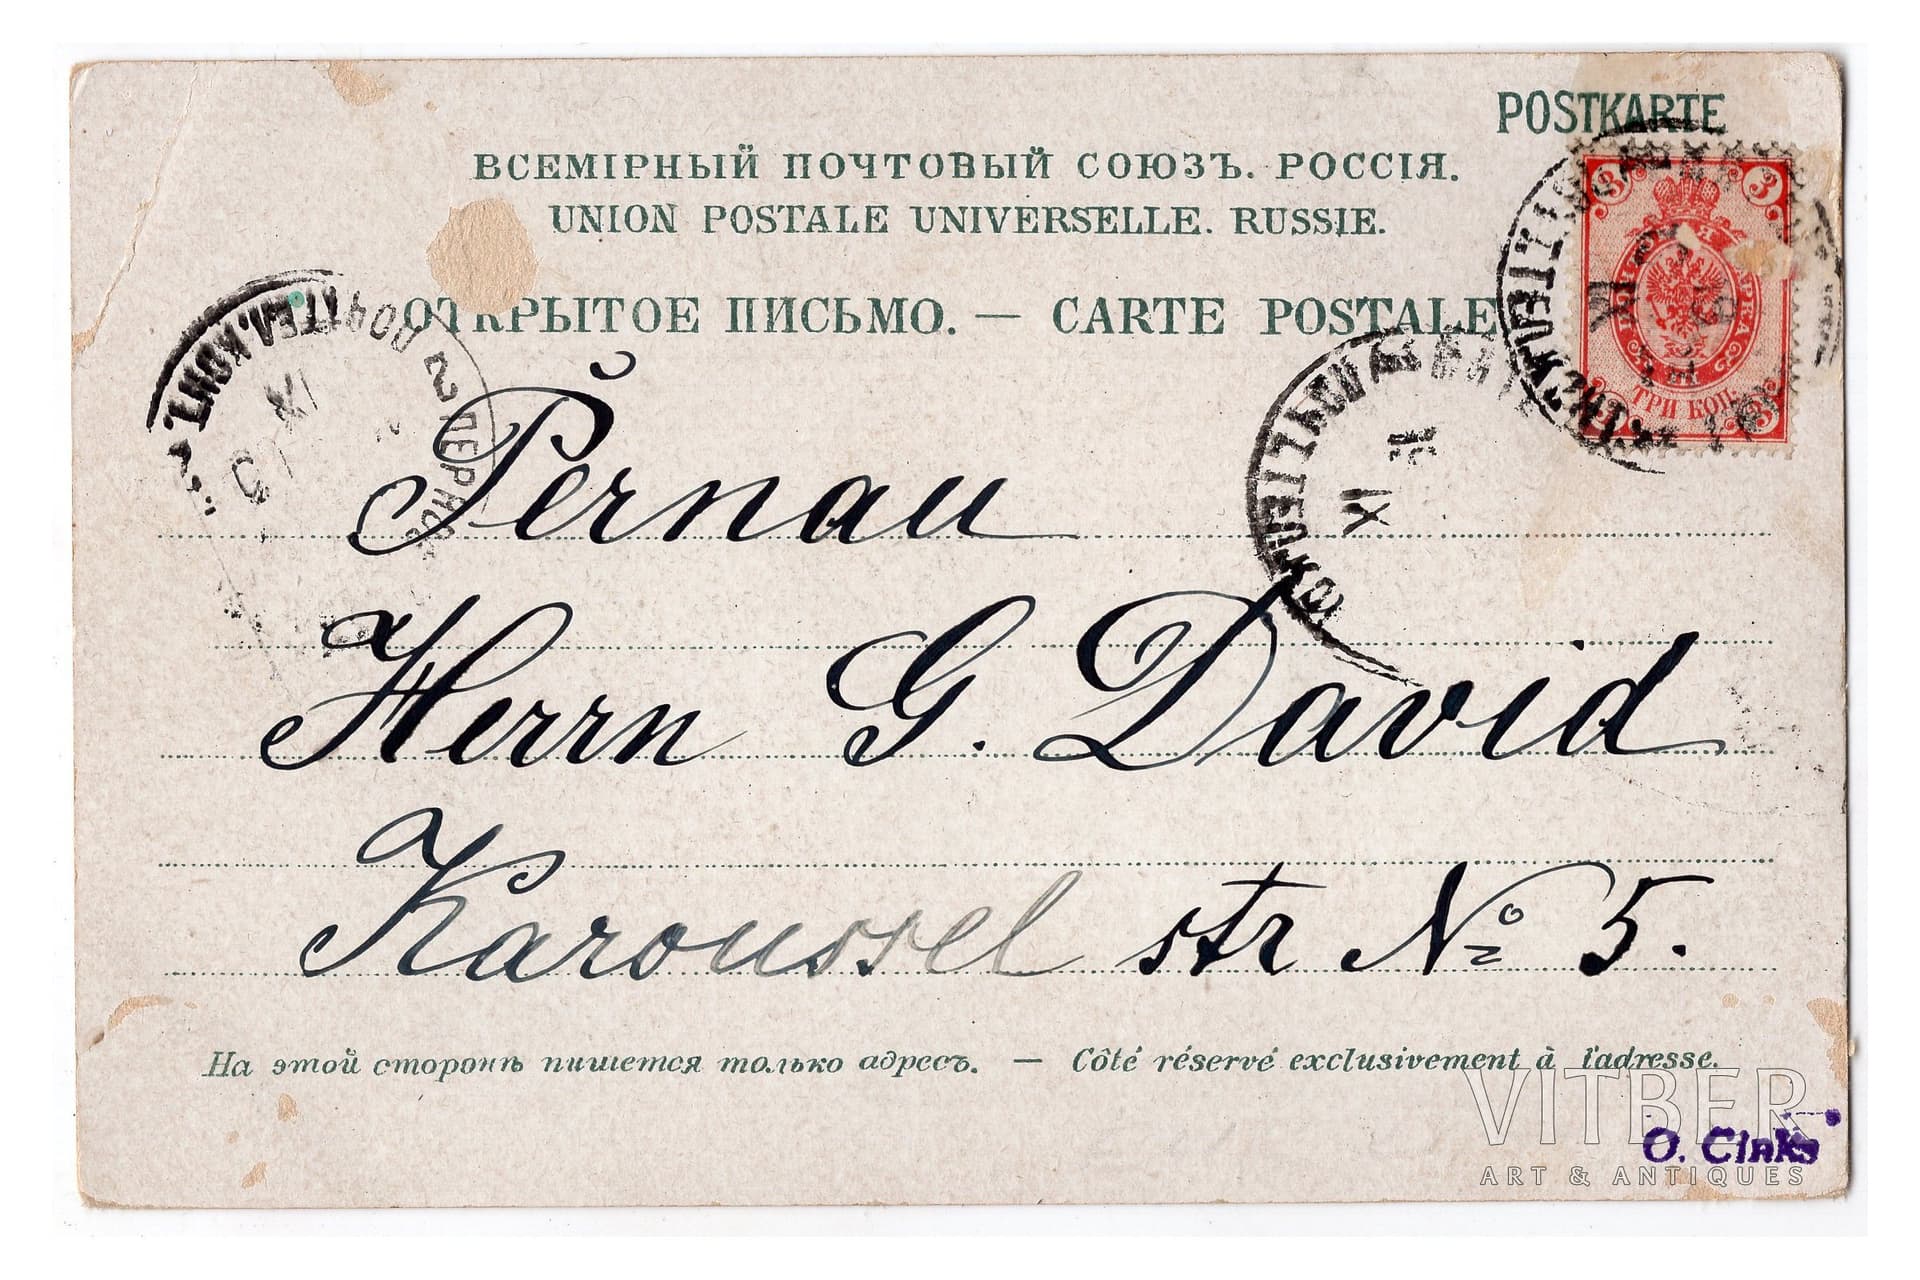 POSTKARTE
ВСЕМІРНЫЙ ПОЧТОВЫЙ СОЮЗЪ. РОССІЯ.
UNION POSTALE UNIVERSELLE. RUSSIE.
ОТКРЫТОЕ ПИСЬМО. — CARTE POSTALE
3 3
ТРИ КОП.
3 3
IX
XI
Pernau
Herrn G. David
Karoussel str № 5.
На этой сторонѣ пишется только адресъ. — Côté réservé exclusivement à l'adresse.
VITBER
O. Cinks
ART & ANTIQUES